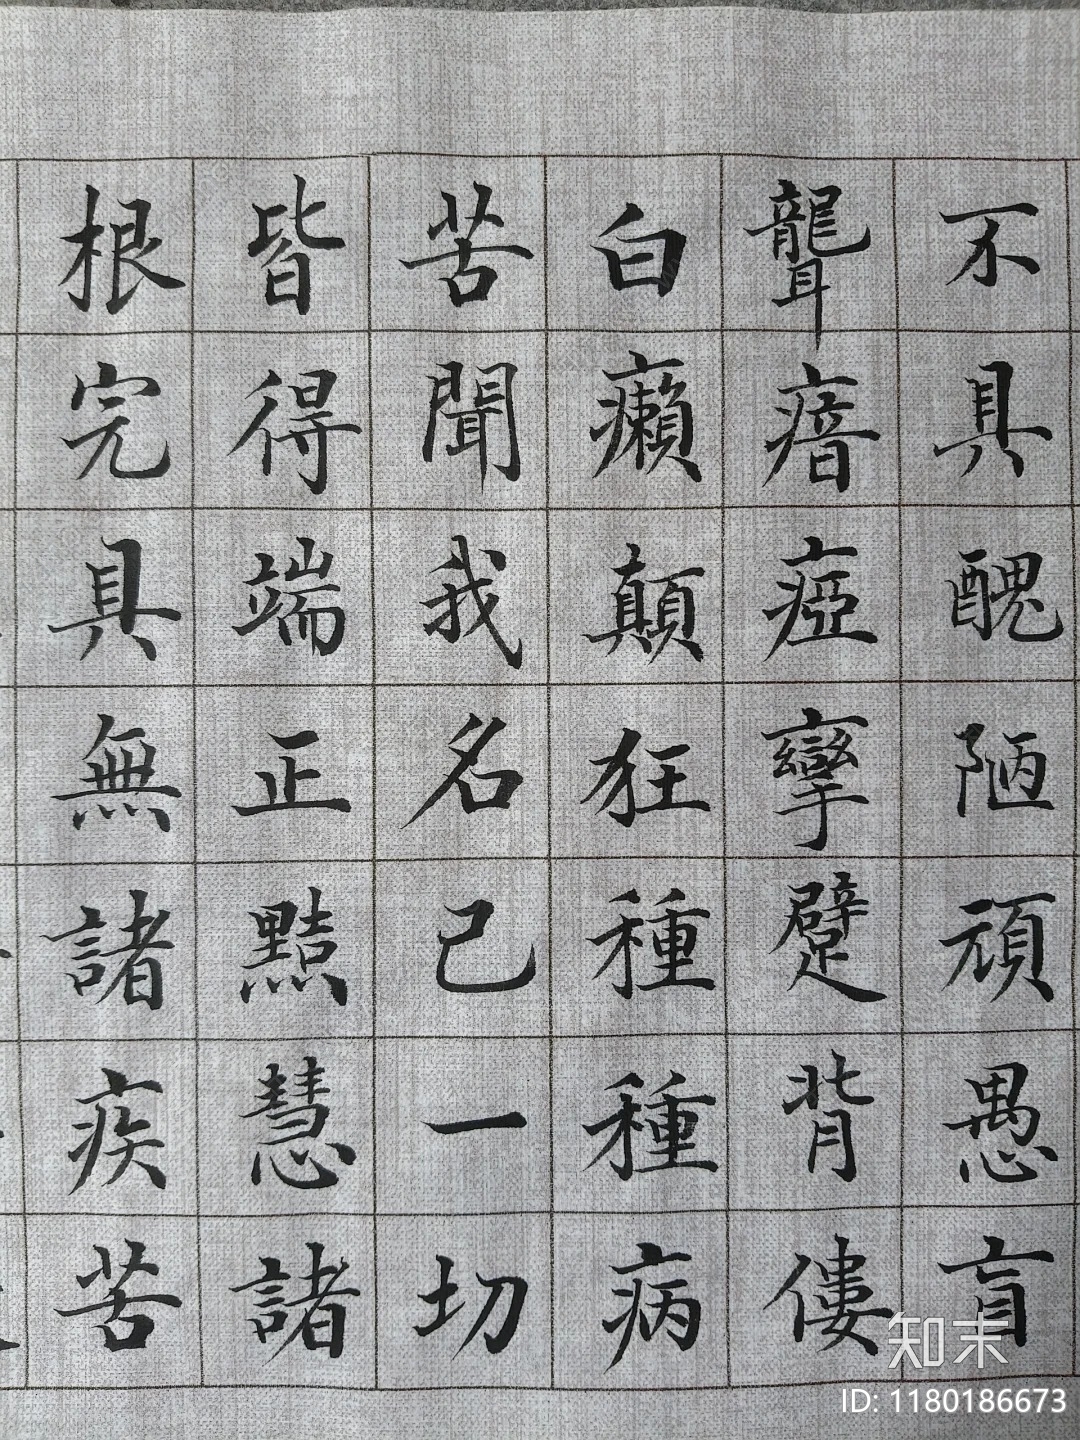 不具醜陋頑愚盲
聾瘖瘂攣躄背僂
白癩顛狂種種病
苦聞我名已一切
皆得端正黠慧諸
根完具無諸疾苦
知末
ID: 1180186673